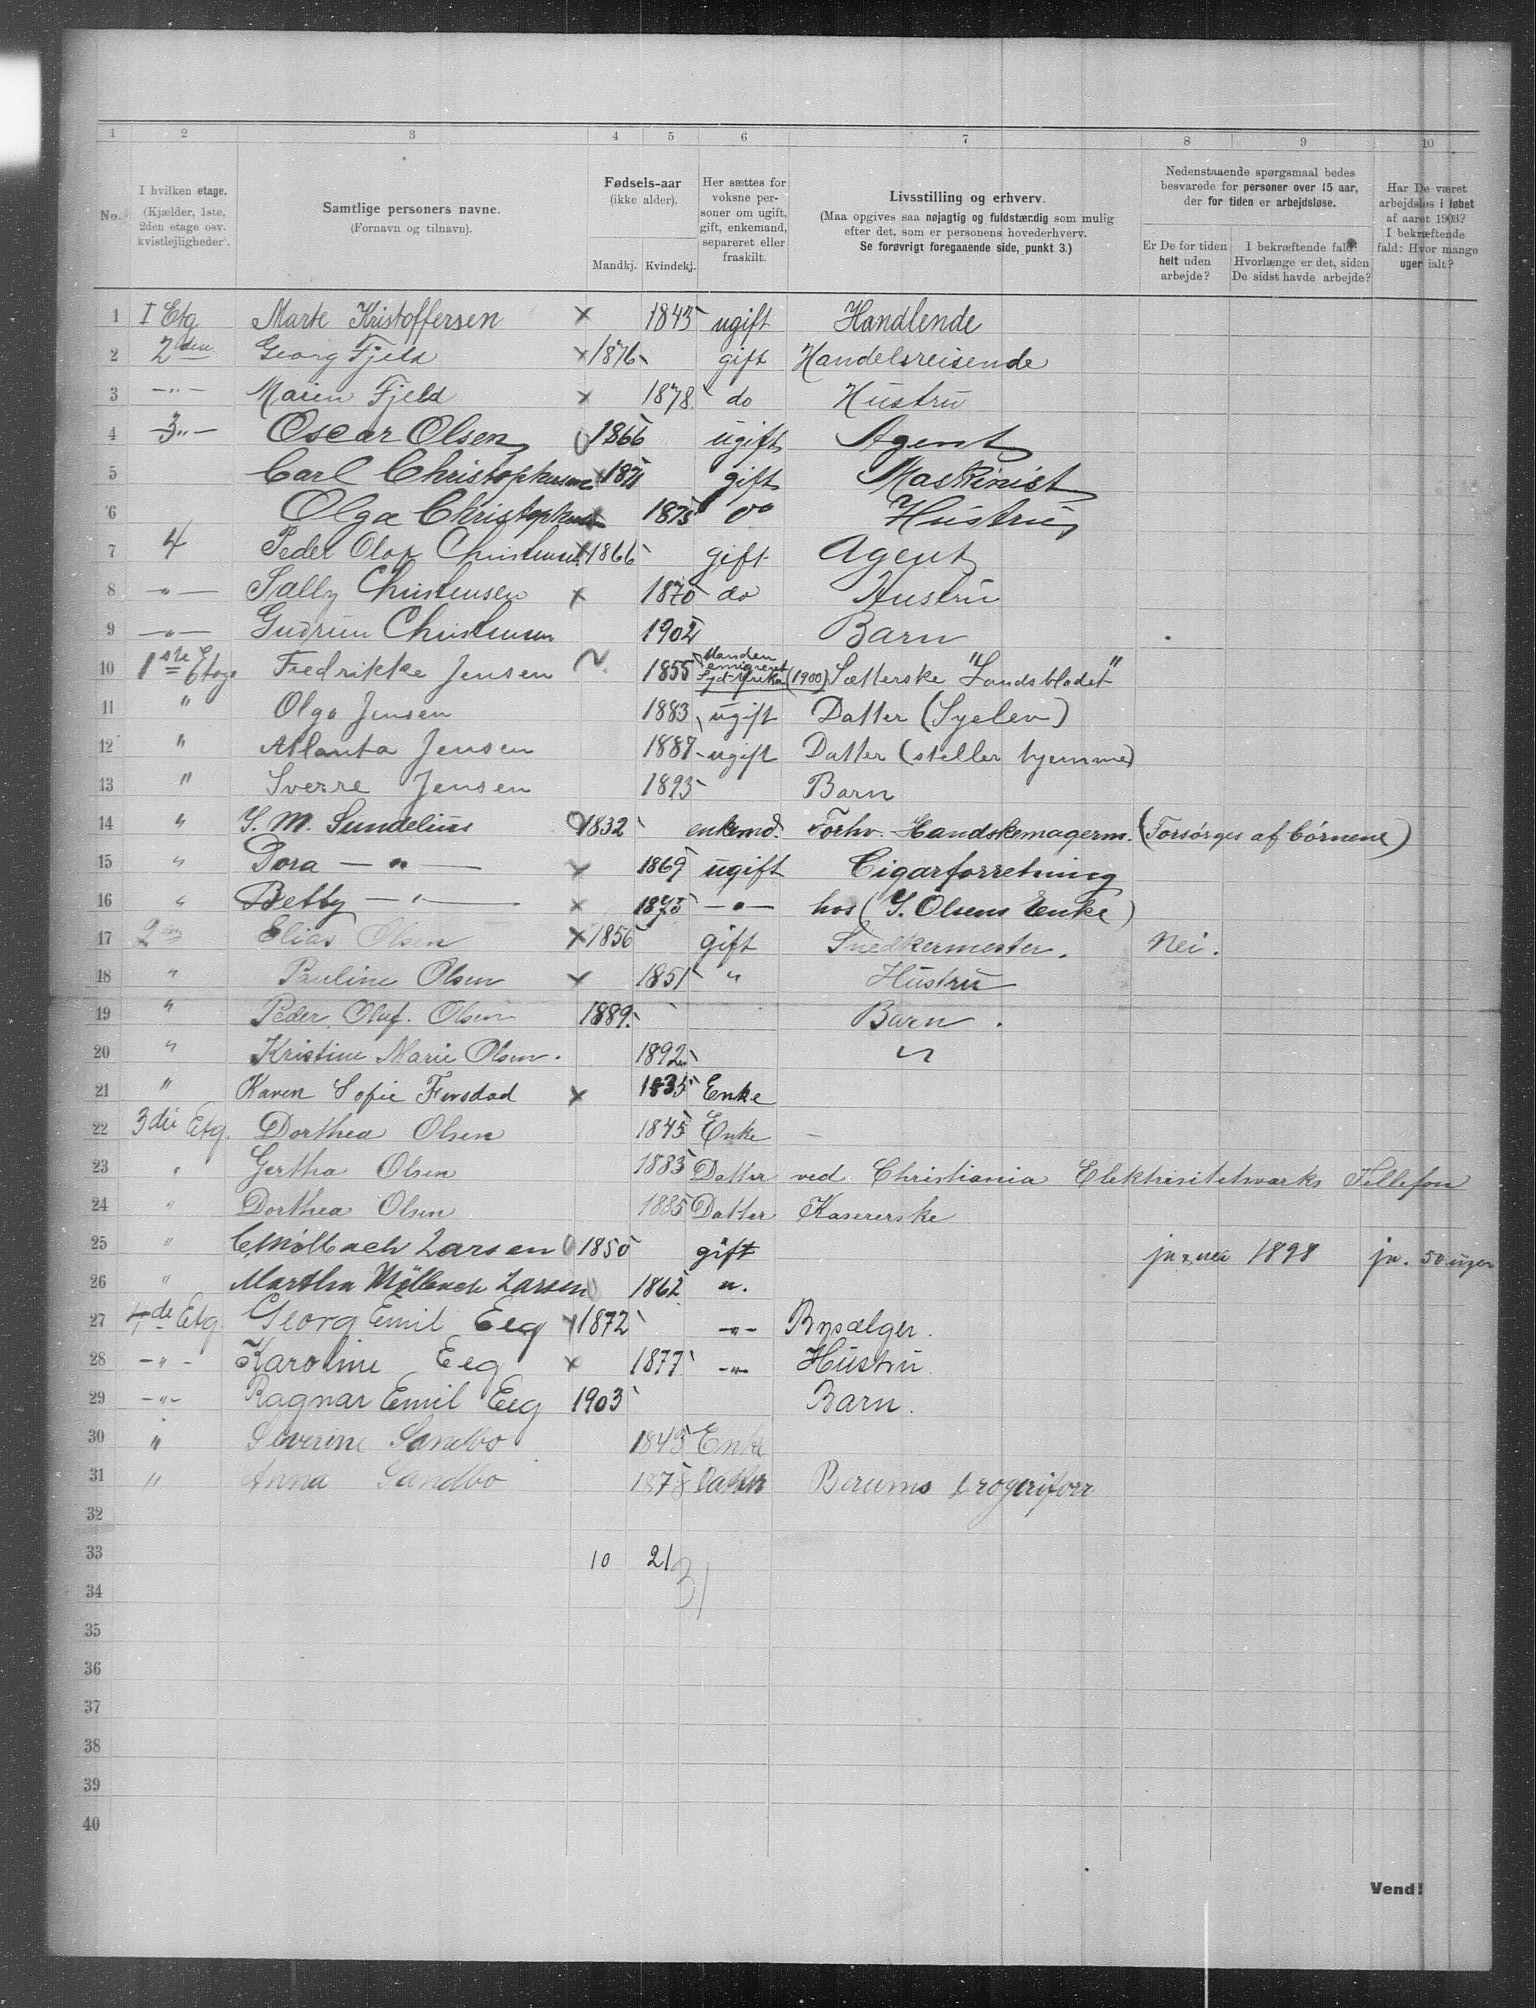 1 2 3 4 5 6 7 8 9 10
No. I hvilken etage. (Kjælder, 1ste, 2den etage osv. kvistlejligheder). Samtlige personers navne. (Fornavn og tilnavn). Fødsels-aar (ikke alder). Mandkj. Kvindekj. Her sættes for voksne personer om ugift, gift, enkemand, separeret eller fraskilt. Livsstilling og erhverv. (Maa opgives saa nøjagtig og fuldstændig som mulig efter det, som er personens hovederhverv. Se forøvrigt foregaaende side, punkt 3.) Nedenstaaende spørgsmaal bedes besvarede for personer over 15 aar, der for tiden er arbejdsløse. Er De for tiden helt uden arbejde? I bekræftende fald: Hvorlænge er det, siden De sidst havde arbejde? Har De været arbejdsløs i løbet af aaret 1903? I bekræftende fald: Hvor mange uger ialt?
1 I Etg Marte Kristoffersen × 1845 ugift Handlende
2 2den Georg Fjeld × 1876 gift Handelsreisende
3 —"— Maien Fjeld × 1878 do Hustru
4 3 —"— Oscar Olsen 0 1866 ugift Agent
5 Carl Christophersen × 1871 gift Maskinist
6 Olga Christophersen × 1875 do Hustru
7 4 Peder Olaf Christensen × 1866 gift Agent
8 —"— Sally Christensen × 1870 do Hustru
9 —"— Gudrun Christensen 1902 Barn
10 1ste Etage Fredrikke Jensen 1855 Manden emigreret Syd-Afrika (1900) Sætterske "Landsbladet"
11 " Olga Jensen 1883 ugift Datter (Syelev)
12 " Atlanta Jensen 1887 ugift Datter (steller hjemme)
13 " Sverre Jensen 1893 Barn
14 " S. M. Sundelius 0 1832 enkemd. Forhv. Handskemagerm. (Forsørges af børnene)
15 " Dora —"— × 1869 ugift Cigarforretning
16 " Betty —"— × 1873 —"— hos (S. Olsens Enke)
17 2den Elias Olsen × 1856 gift Snedkermester. Nei.
18 " Pauline Olsen × 1851 " Hustru
19 " Peder Oluf. Olsen 1889. Barn.
20 " Kristine Marie Olsen. 1892 "
21 " Karen Sofie × 1835 Enke
22 3die Etg. Dorthea Olsen 1845 Enke —
23 " Gertha Olsen 1883 Datter ved Christiania Elektrisitetsværks Tellefon
24 " Dorthea Olsen 1885 Datter Kasererske
25 " C. Mølbach Larsen 0 1850 gift ja 1898 ja. 50 uger
26 " Martha Mølbach Larsen 0 1862 ".
27 4de Etg. Georg Emil Eeg × 1872 —"— Bysælger.
28 —"— Karoline Eeg × 1877 —"— Hustru.
29 —"— Ragnar Emil Eeg 1903 Barn.
30 " Severine Sandbo 1843 Enke
31 " Anna Sandbo 1878 Datter Berums Drogeriforr
32
33 10 21
31
34
35
36
37
38
39
40
Vend!